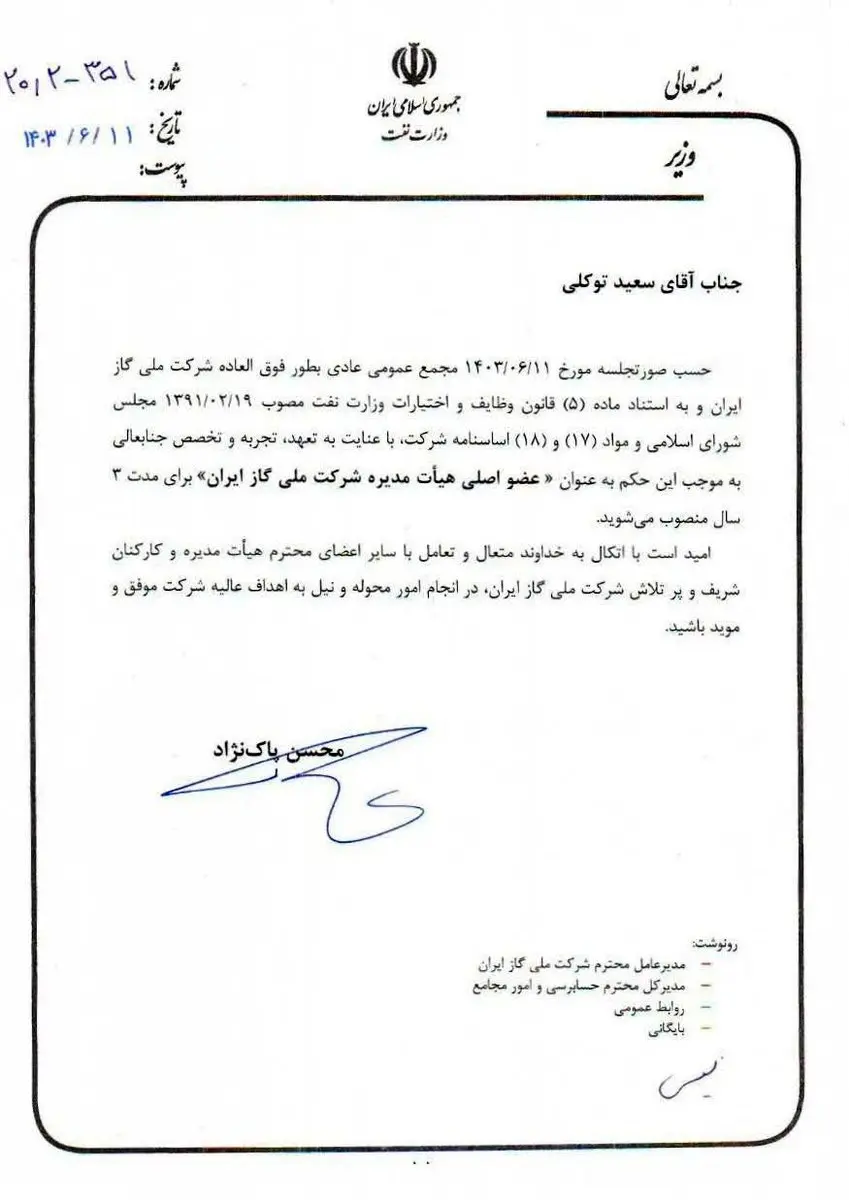 بسمه تعالی
وزیر
جمهوری اسلامی ایران
وزارت نفت
شماره: ۲۰/۲-۳۵۱
تاریخ: ۱۴۰۳/۶/۱۱
پیوست:
جناب آقای سعید توکلی
حسب صورتجلسه مورخ ۱۴۰۳/۰۶/۱۱ مجمع عمومی عادی بطور فوق العاده شرکت ملی گاز
ایران و به استناد ماده (۵) قانون وظایف و اختیارات وزارت نفت مصوب ۱۳۹۱/۰۲/۱۹ مجلس
شورای اسلامی و مواد (۱۷) و (۱۸) اساسنامه شرکت، با عنایت به تعهد، تجربه و تخصص جنابعالی
به موجب این حکم به عنوان « عضو اصلی هیأت مدیره شرکت ملی گاز ایران» برای مدت ۳
سال منصوب می‌شوید.
امید است با اتکال به خداوند متعال و تعامل با سایر اعضای محترم هیأت مدیره و کارکنان
شریف و پر تلاش شرکت ملی گاز ایران، در انجام امور محوله و نیل به اهداف عالیه شرکت موفق و
موید باشید.
محسن پاک‌نژاد
رونوشت:
– مدیرعامل محترم شرکت ملی گاز ایران
– مدیرکل محترم حسابرسی و امور مجامع
– روابط عمومی
– بایگانی